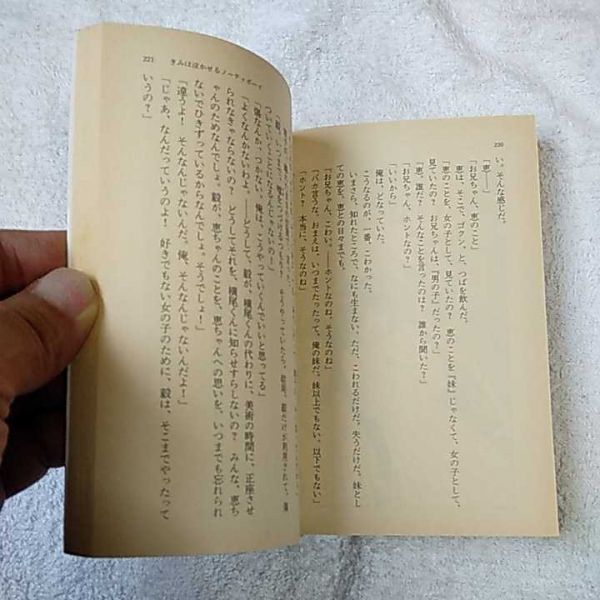 220
い。そんな感じだ。
「恵――」
「お兄ちゃん、恵のこと」
恵は、そこで、ゴクン、と、つばを飲んだ。
「恵のことを、女の子として、見ていたの? 恵のことを『妹』じゃなくて、女の子として、
見ていたの? お兄ちゃんは、『男の子』だったの?」
「恵、誰だ? そんなことを言ったのは? 誰から聞いた?」
「いいから」
俺は、どなっていた。
こうなるのが、一番、こわかった。
いまさら、知れたところで、なにも生まない。ただ、こわれるだけだ。失うだけだ。妹とし
ての恵を、恵との日々までも。
「お兄ちゃん、こわい。――ホントなのね、そうなのね」
「バカ言うな。おまえは、いつまでたったって、俺の妹だ。妹以上でもない、以下でもない」
「ホント? 本当に、そうなのね」
221 きみは泣かせるノーティボーイ
ついていくことになるんじゃないの!」
「傷なんか、つかない。俺は、こうやっていくんでいいと思ってる」
「よくなんかないわよ。――どうして、毅が、横尾くんの代わりに、美術の時間に、正座させ
られなきゃならないの? どうしてそれを、横尾くんに知らせすらしないの? みんな、恵ち
ゃんのためなんでしょ。毅が、恵ちゃんのことを、恵ちゃんへの思いを、いつまでも忘れられ
ないでひきずっているからなんでしょ。そうでしょ!」
「違うよ! そんなんじゃないんだ。俺、そんなんじゃないんだよ!」
「じゃあ、なんだっていうのよ! 好きでもない女の子のために、毅は、そこまでやったって
いうの?」